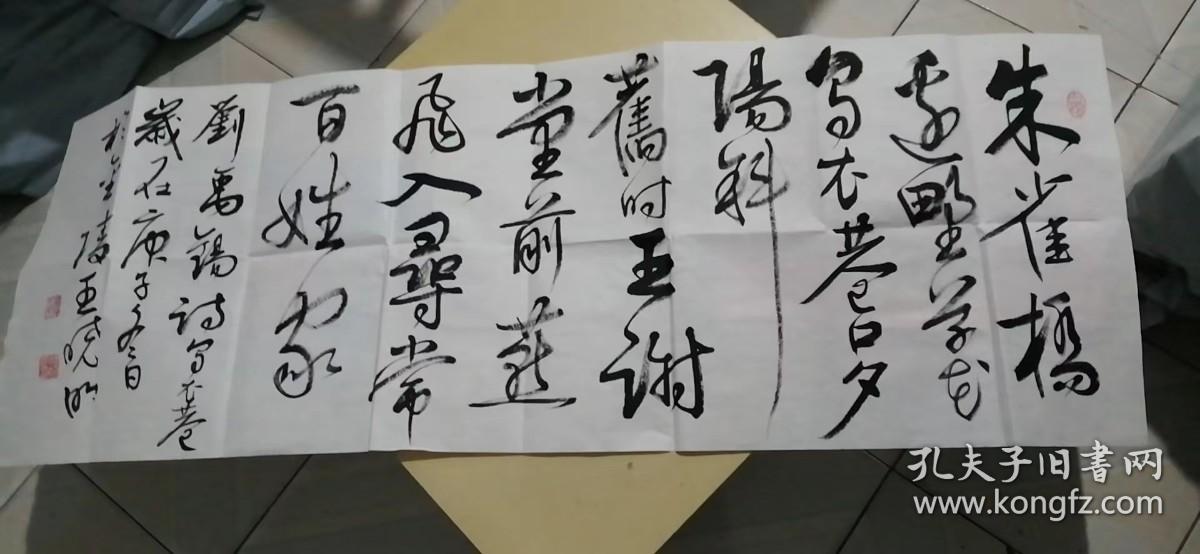 朱雀橋
邊野草花
烏衣巷口夕
陽斜
舊时王謝
堂前燕
飛入尋常
百姓家
劉禹錫詩烏衣巷
歲在庚子冬日
於金陵王晓明
孔夫子旧書网
www.kongfz.com